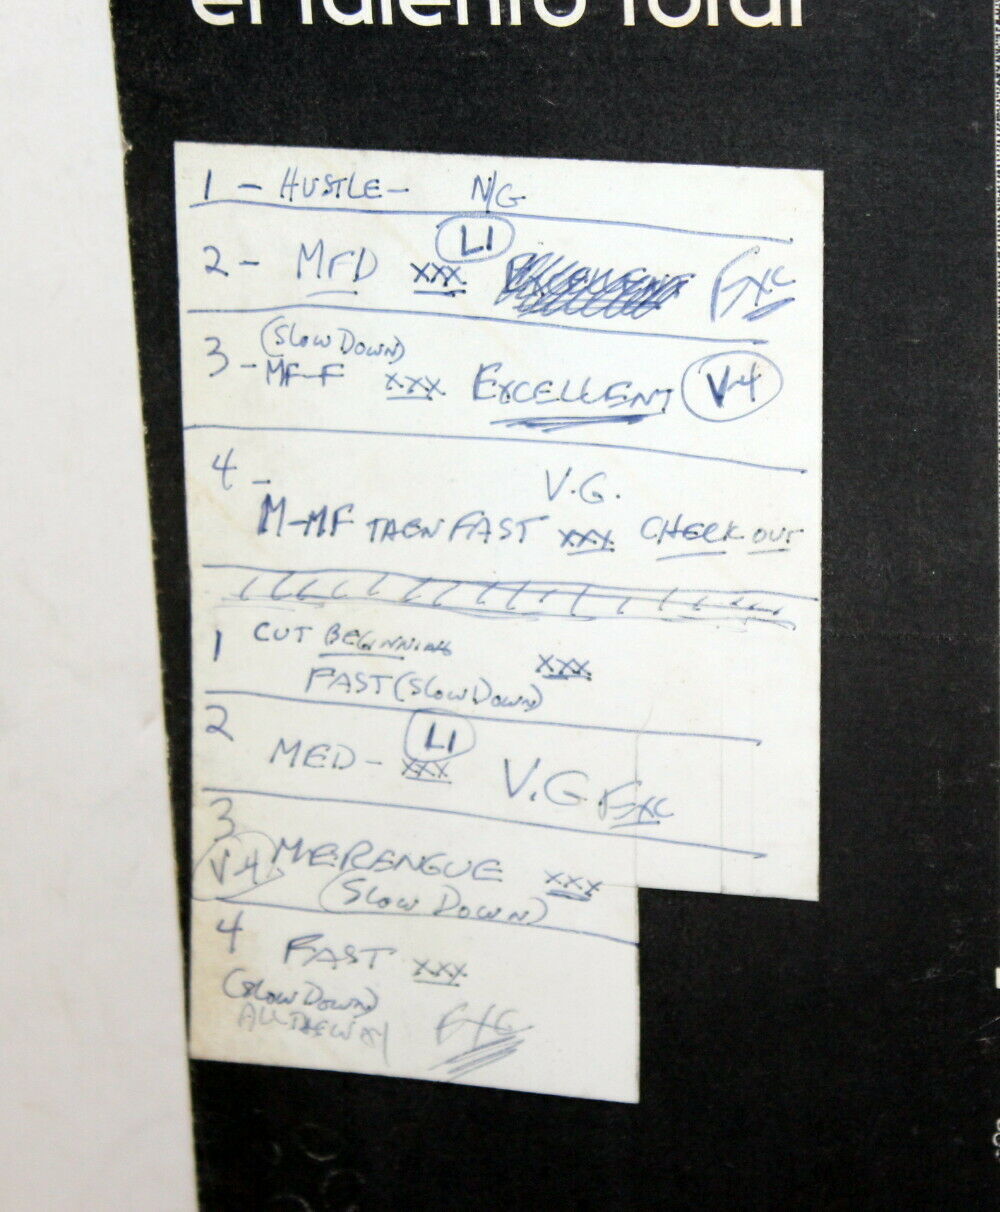 el talento total
1 - HUSTLE - N/G
2 - MFD XXX L1 EXC
(SLOW DOWN)
3 - MF-F XXX EXCELLENT V-4
4 - V.G.
M-MF THEN FAST XXX CHECK OUT
1 CUT BEGINNING XXX
FAST (SLOW DOWN)
2 L1
MED - XXX V.G. EXC
3
V4 MERENGUE XXX
(SLOW DOWN)
4 FAST XXX
(SLOW DOWN)
ALL THE WAY EXC